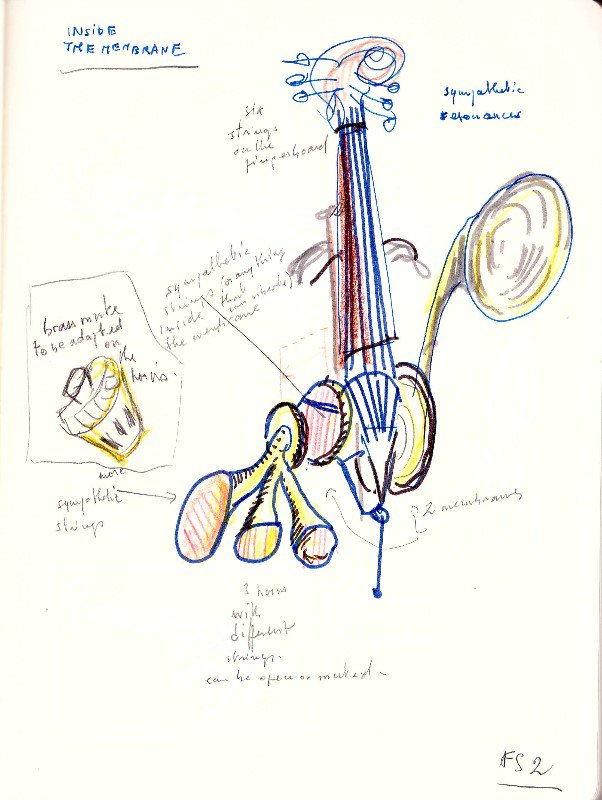 INSIDE
THE MEMBRANE
sympathetic
resonances
six
strings
on the
fingerboard
sympathetic
strings or anything
inside that
the membrane
brass mute
to be adapted
on
the
horns.
more
sympathetic
strings
2 membranes
3 horns
with
different
strings.
can be open or muted.
FS 2